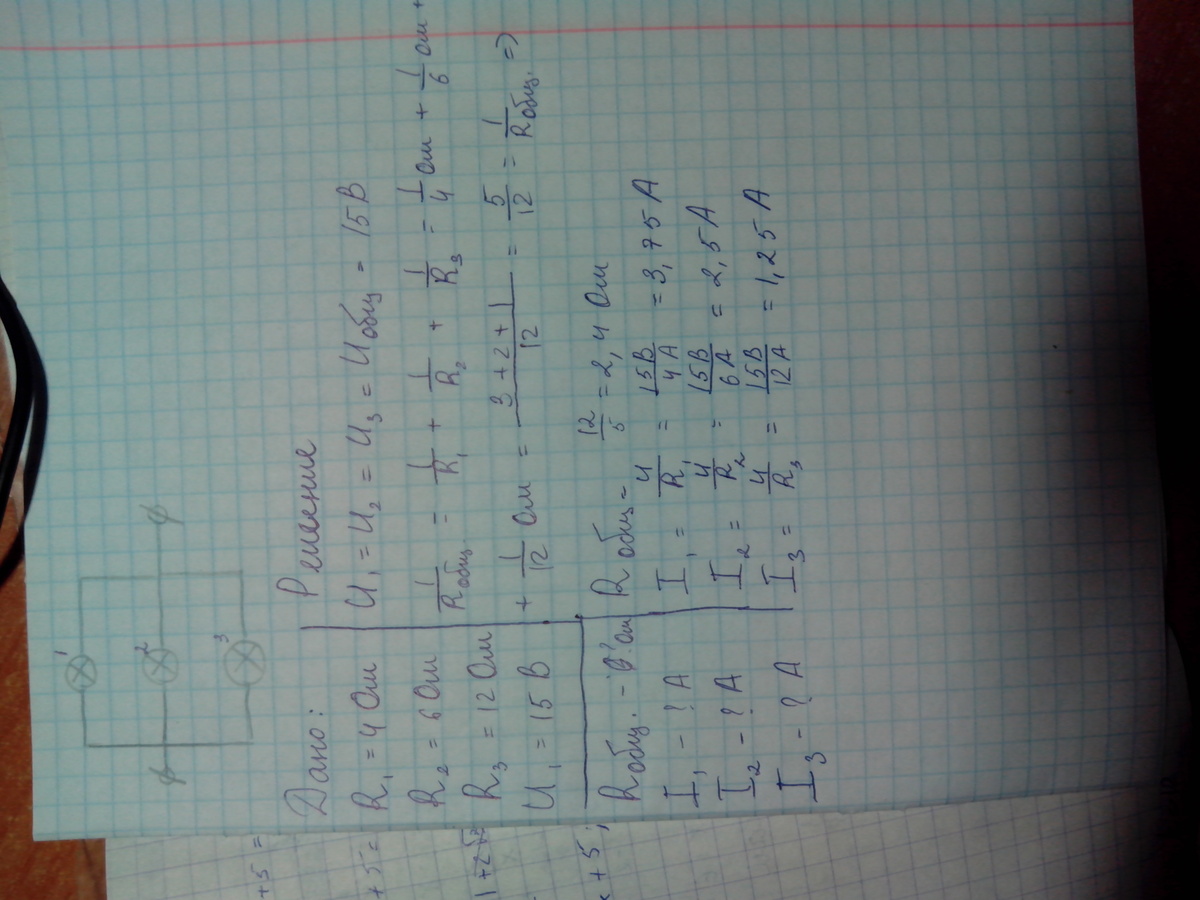 1
2
3
Дано:
R₁ = 4 Ом
R₂ = 6 Ом
R₃ = 12 Ом
U₁ = 15 В
Rобщ. - ? Ом
I₁ - ? А
I₂ - ? А
I₃ - ? А
Решение
U₁ = U₂ = U₃ = Uобщ = 15 В
1/Rобщ. = 1/R₁ + 1/R₂ + 1/R₃ = 1/4 Ом + 1/6 Ом +
+ 1/12 Ом = 3 + 2 + 1/12 = 5/12 = 1/Rобщ. =>
Rобщ = 12/5 = 2,4 Ом
I₁ = U/R₁ = 15 В/4 А = 3,75 А
I₂ = U/R₂ = 15 В/6 А = 2,5 А
I₃ = U/R₃ = 15 В/12 А = 1,25 А
+5 =
+5 =
+5;